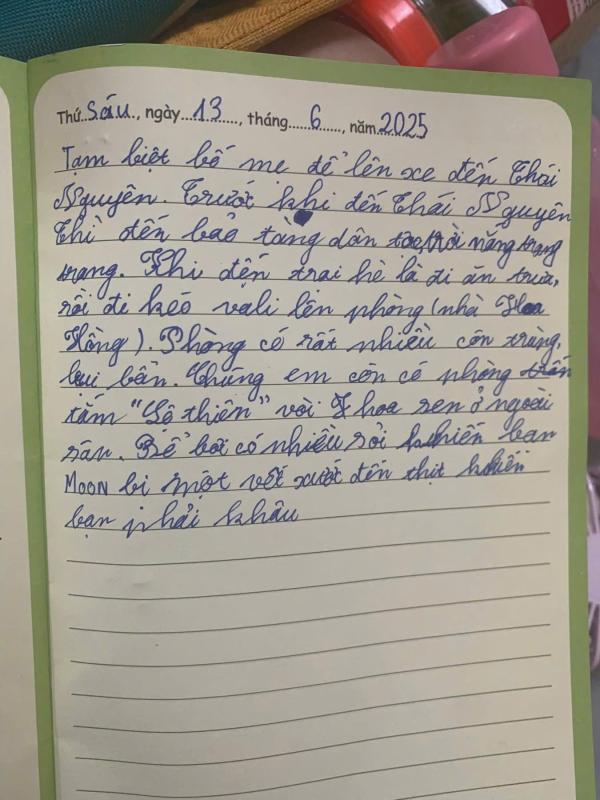 Thứ..Sáu., ngày..13...., tháng......6...., năm..2025
Tạm biệt bố mẹ để lên xe đến Thái
Nguyên. Trước khi đến Thái Nguyên
thì đến bảo tàng dân tộc, trời nắng trang
trang. Khi đến trại hè là đi ăn trưa,
rồi đi kéo vali lên phòng (nhà Hoa
Hồng). Phòng có rất nhiều côn trùng,
bụi bẩn. Chúng em còn có phòng
tắm "Lộ thiên" với 7 hoa sen ở ngoài
sân. Bể bơi có nhiều sỏi khiến bạn
MOON bị một vết xướt đến thịt khiến
bạn phải khâu